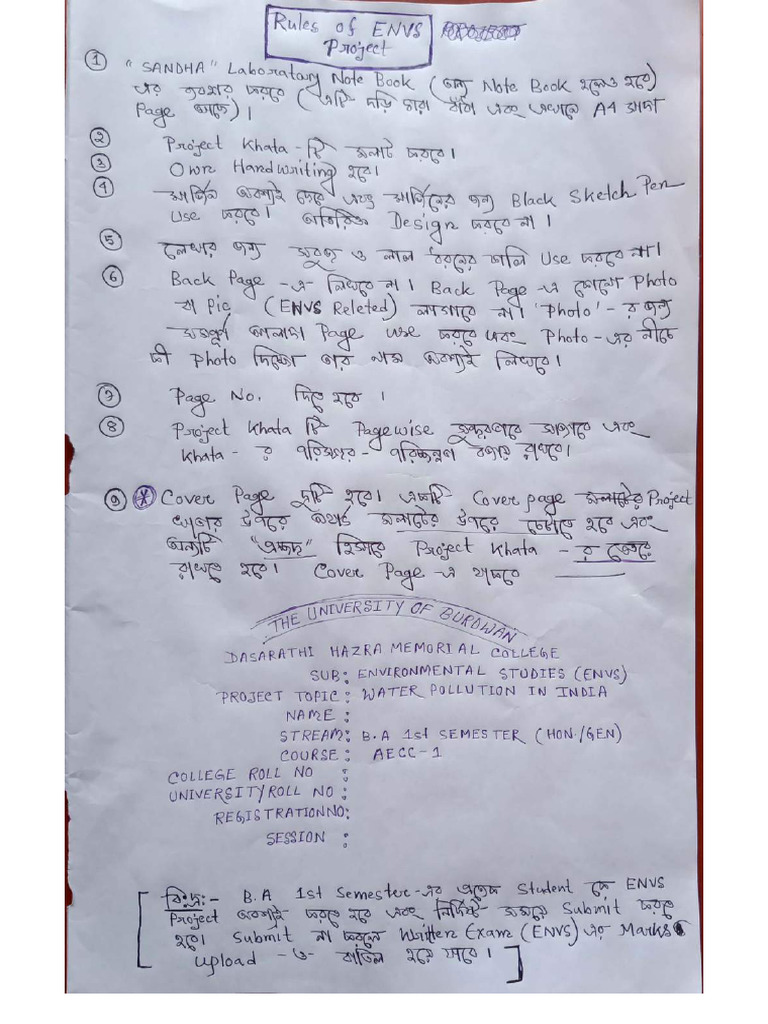 Rules of ENVS
Project
① "SANDHA" Laboratory Note Book (অন্য Note Book হলেও হবে)
এর ব্যবহার করবে (এটি দড়ি দ্বারা বাঁধা এবং এখানে A4 সাদা
Page আছে)।
② Project Khata-টি মলাট করবে।
③ Own Handwriting হবে।
④ মার্জিন অবশ্যই দেবে এবং মার্জিনের জন্য Black Sketch Pen
Use করবে। অতিরিক্ত Design করবে না।
⑤ লেখার জন্য সবুজ ও লাল ধরনের কালি Use করবে না।
⑥ Back Page-এ লিখবে না। Back Page-এ কোনো Photo
বা Pic (ENVS Releted) লাগাবে না। 'Photo'-র জন্য
সম্পূর্ণ আলাদা Page use করবে এবং Photo-এর নীচে
কী Photo দিচ্ছো তার নাম অবশ্যই লিখবে।
⑦ Page No. দিতে হবে।
⑧ Project Khata টি Pagewise সুন্দরভাবে সাজাবে এবং
Khata-র পরিষ্কার-পরিচ্ছন্নতা বজায় রাখবে।
⑨ * Cover Page দুটি হবে। একটি Cover page মলাটের Project
খাতার উপরে অর্থাৎ মলাটের উপরে চেটাতে হবে এবং
অন্যটি "প্রচ্ছদ" হিসাবে Project Khata-র ভেতরে
রাখতে হবে। Cover Page-এ থাকবে
THE UNIVERSITY OF BURDWAN
DASARATHI HAZRA MEMORIAL COLLEGE
SUB: ENVIRONMENTAL STUDIES (ENVS)
PROJECT TOPIC: WATER POLLUTION IN INDIA
NAME:
STREAM: B.A 1st SEMESTER (HON./GEN)
COURSE: AECC-1
COLLEGE ROLL NO :
UNIVERSITY ROLL NO :
REGISTRATION NO:
SESSION :
[বিঃদ্রঃ- B.A 1st Semester-এর প্রত্যেক Student কে ENVS
Project অবশ্যই করতে হবে এবং নির্দিষ্ট সময়ে Submit করতে
হবে। Submit না করলে Written Exam (ENVS) এর Marks
Upload-ও বাতিল হয়ে যাবে।]